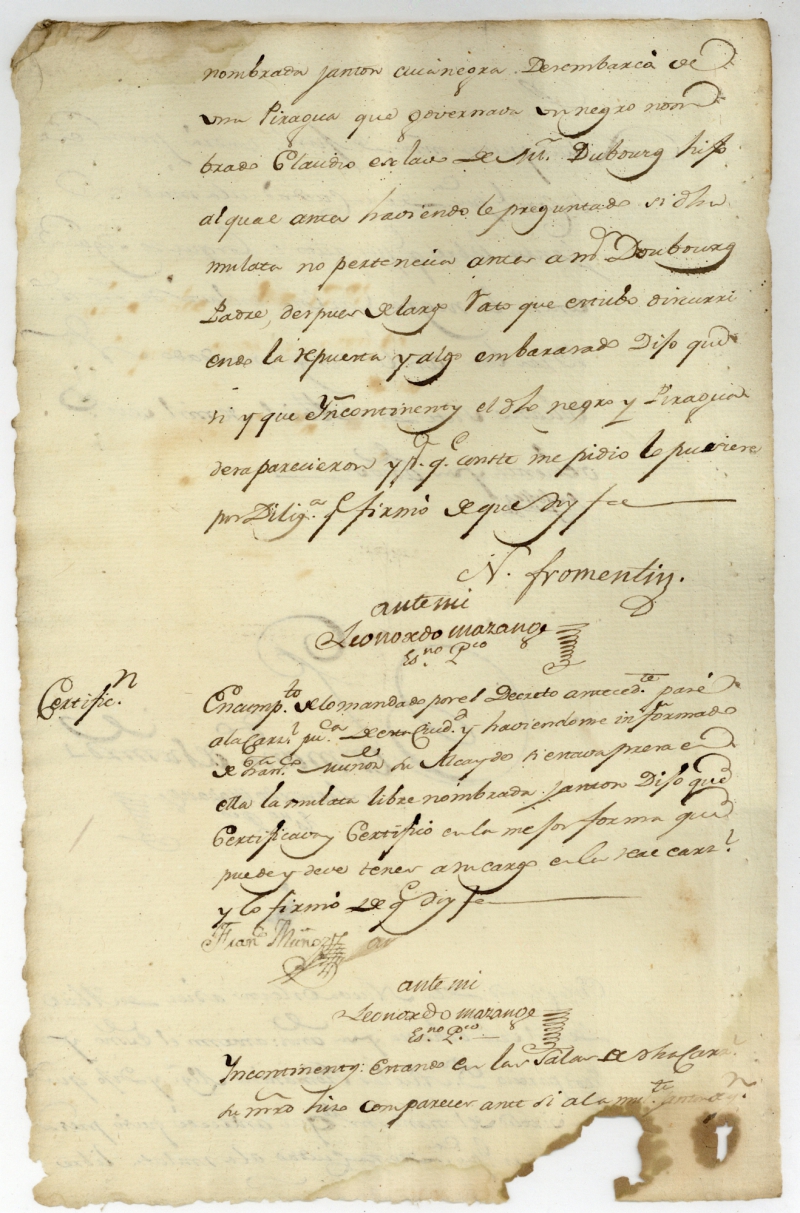 nombrada janton cuia negra. Desembarcó de
una Piragua que governava un negro nom
brado Claudio esclavo de Mr. Dubourg hijo
al qual ama haviendole preguntado si dha
mulata no pertenecia antes a md Doubourg
Padre, despues de largo rato que estubo discurri
endo la repuesta y algo embarasado Dijo que
si y que Yncontinenty el dho negro y Piragua
desaparecieron y pa. qe. conste me pidio lo pusiere
por Dilig.a q firmó de que doy fee
N. fromentin.
ante mi
Leonardo mazange
Es.no P.co
Certific.n
En cump.to de lo mandado por el Decreto anteced.te pasé
a la Carz.l pu.ca de esta Ciud.d y haviendome informado
de Fran.co Muñoz su Alcayde si estava presa en
ella la mulata libre nombrada janton Dijo que
Certificava y Certificó en la mejor forma que
puede y deve tener a su cargo en la Rl. carz.l
y lo firmó de q doy fe
Fran.co Muñoz
ante mi
Leonardo mazange
Es.no P.co
Yncontinenty: Estando en las Salas de dha Carz.l
su mrd hizo comparecer ante si a la mul.ta